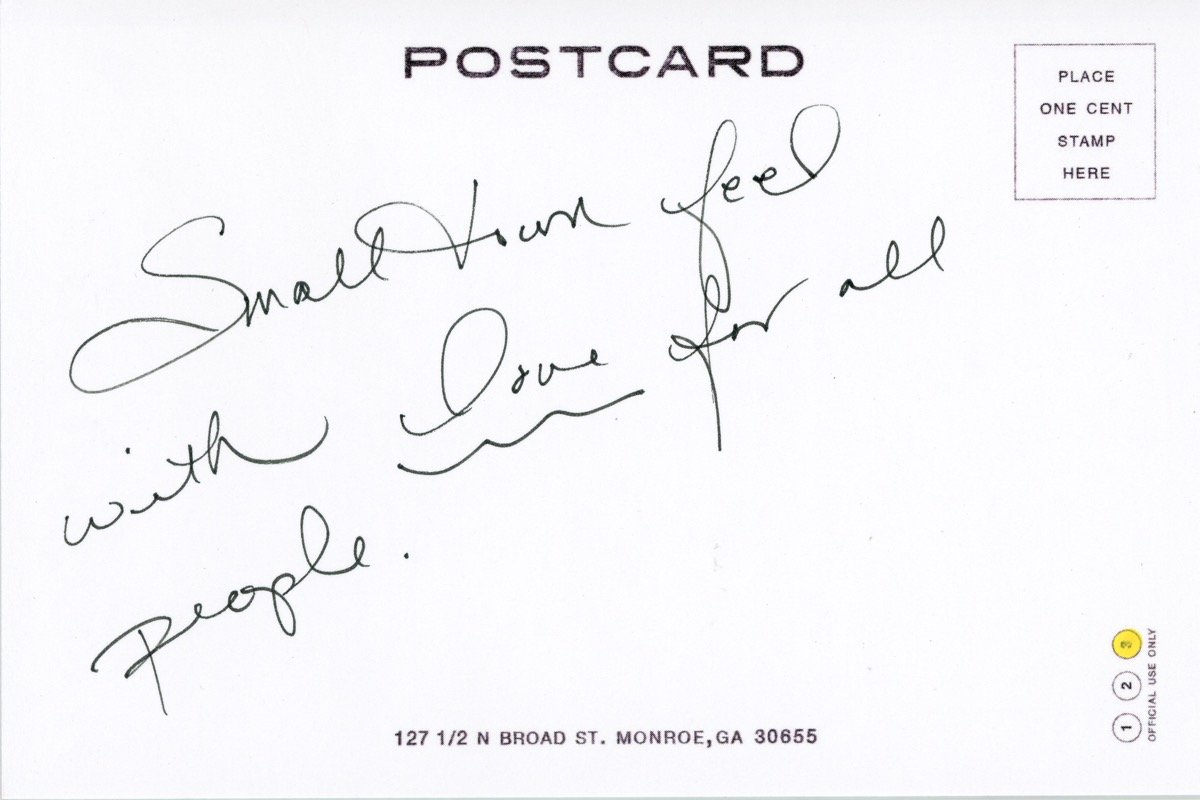 POSTCARD
PLACE
ONE CENT
STAMP
HERE
Small town feel
with love for all
people.
127 1/2 N BROAD ST. MONROE, GA 30655
1 2 3
OFFICIAL USE ONLY